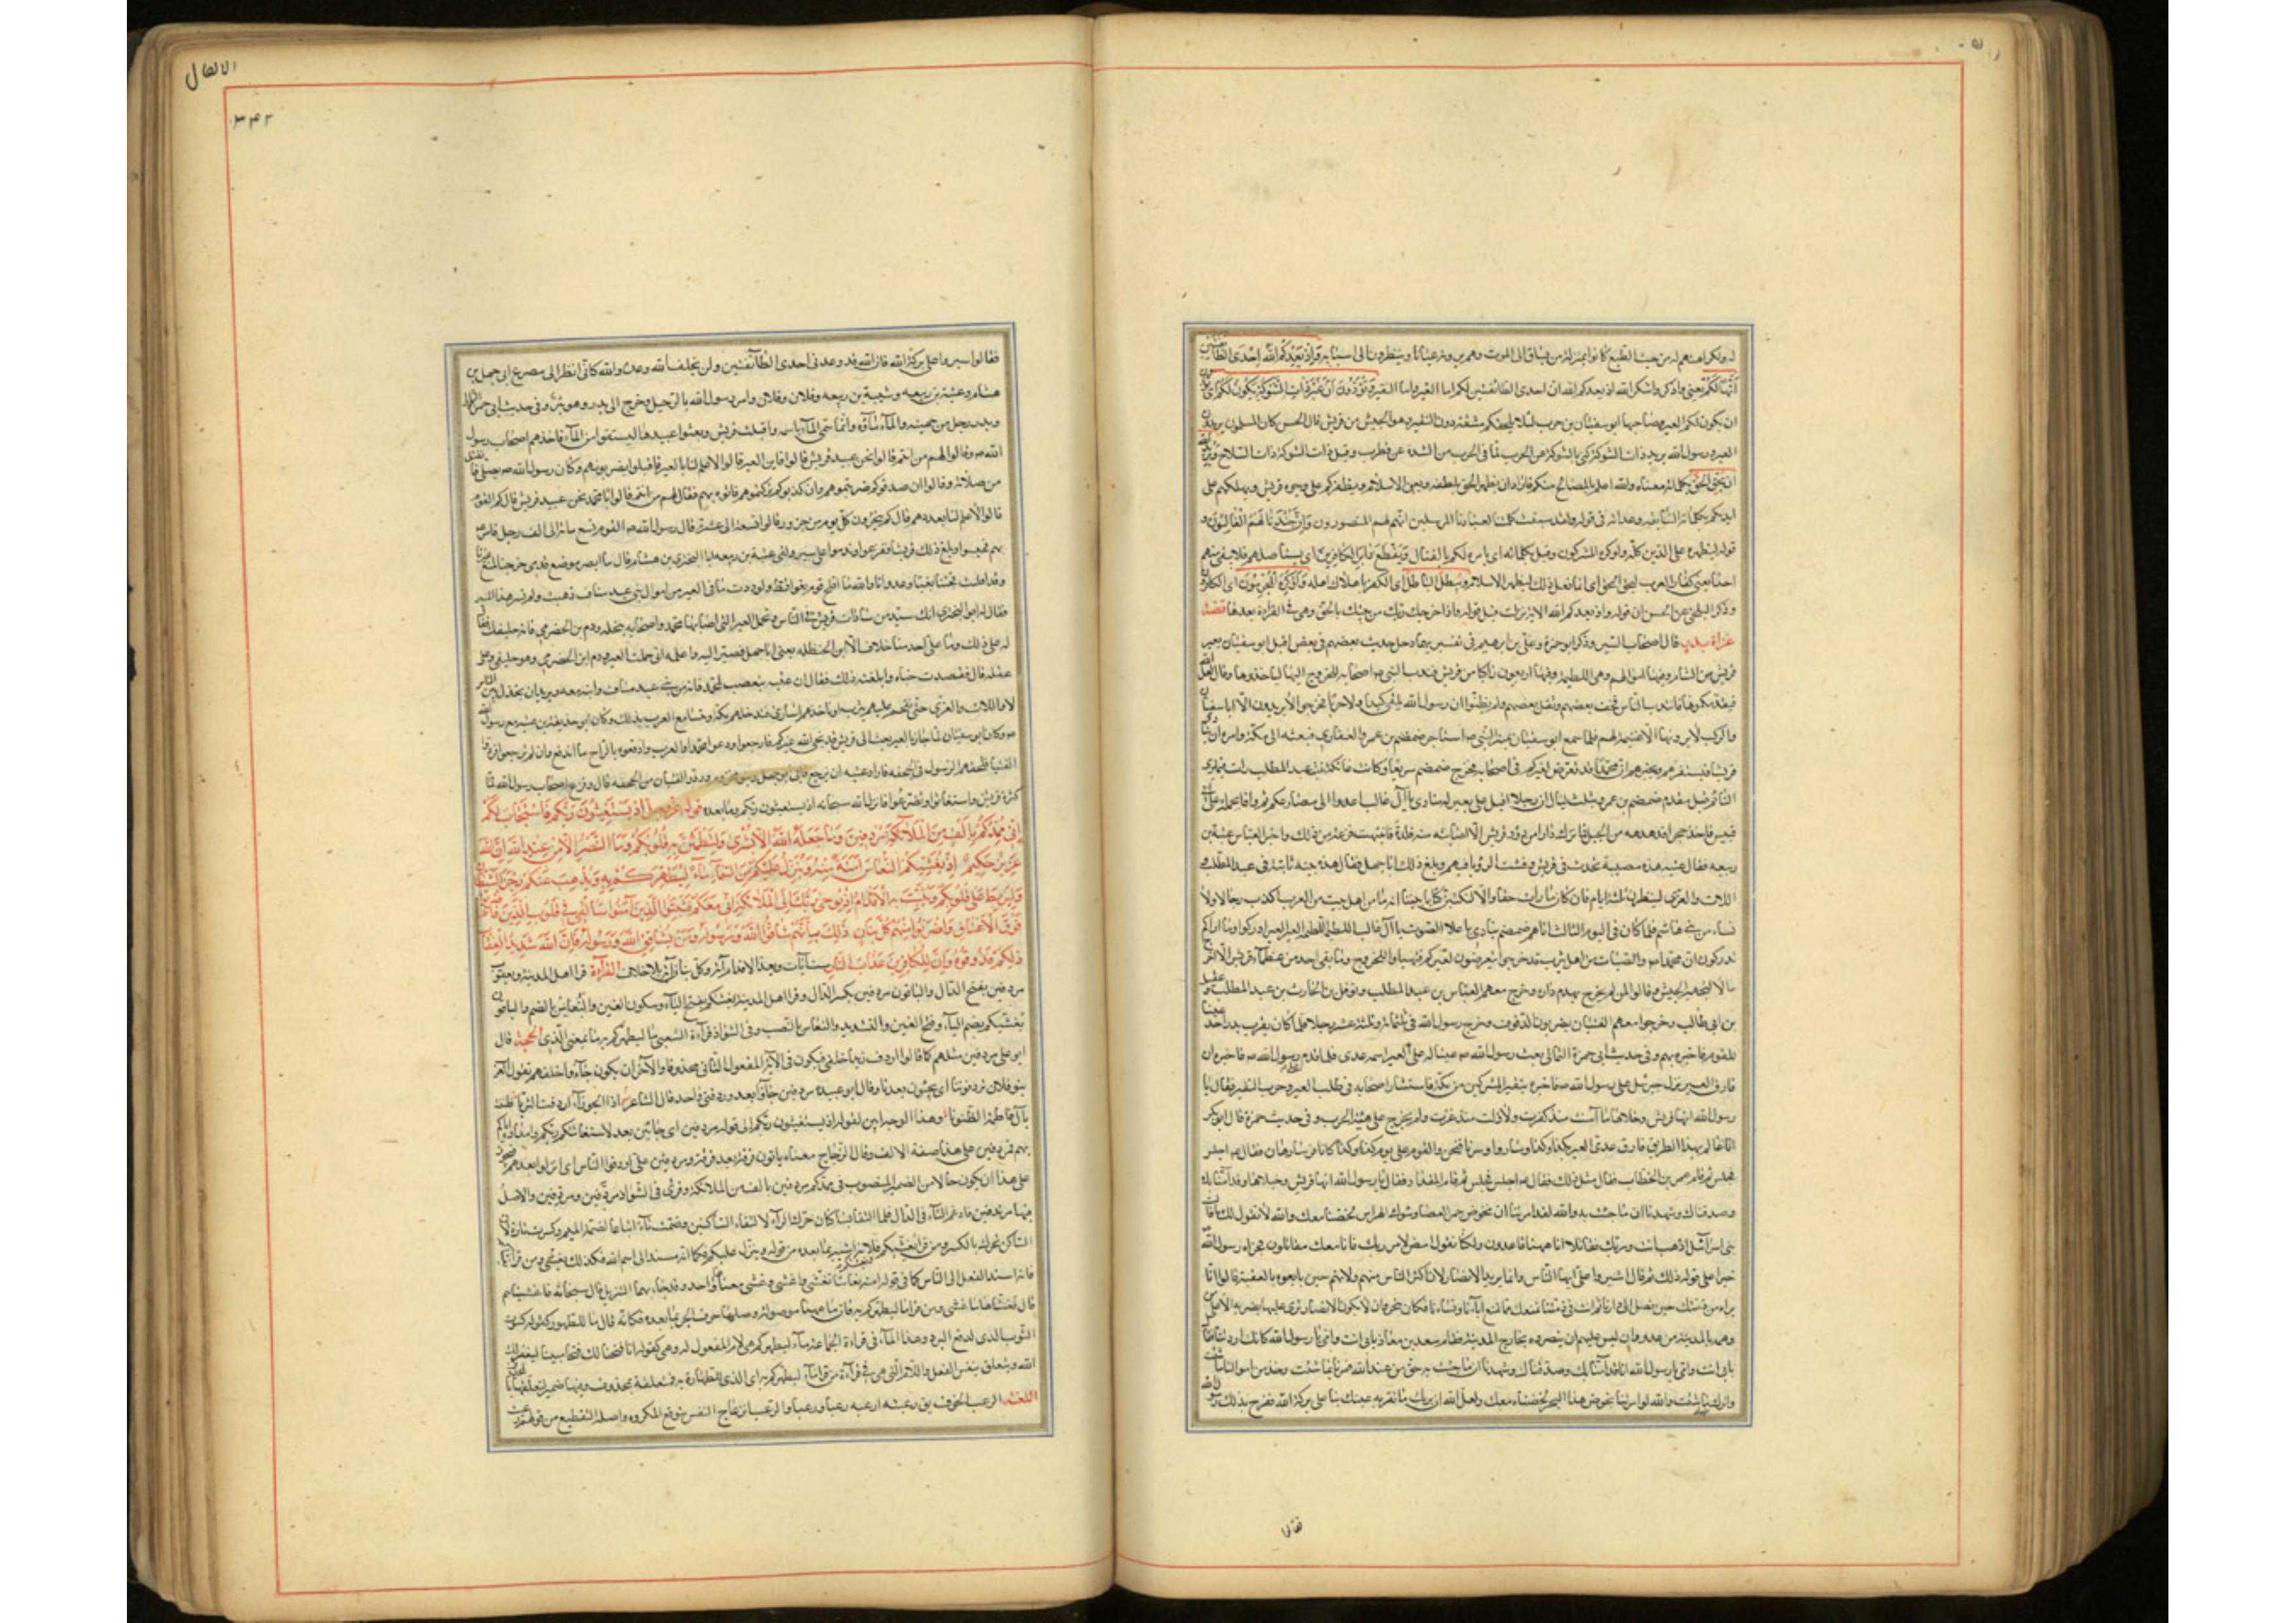 له ولكراهتهم له من حيث الطبع كانوا بمنزلة من يساق الى الموت وهم يرونه عيانا وينظرون الى اسبابه واذ يعدكم الله احدى الطائفتين
انها لكم يعني واذكروا واشكروا الله اذ يعدكم الله ان احدى الطائفتين لكم اما العير واما النفير وتودون ان غير ذات الشوكة تكون لكم اى تودون
ان يكون لكم العير وصاحبها ابو سفيان بن حرب لئلا يلحقكم مشقة دون النفير وهو الجيش من قريش قال الحسن كان المسلمون يريدون
العير ورسول الله يريد ذات الشوكة كنى بالشوكة عن الحرب لما فى الحرب من الشدة عن قطرب وقيل ذات الشوكة ذات السلاح ويريد الله
ان يحق الحق بكلماته معناه والله اعلم بالمصالح منكم فاراد ان يظهر الحق بلطفه ويعز الاسلام ويظفركم على وجوه قريش ويهلكهم على
ايديكم بكلماته السابقة وعداته فى قوله ولقد سبقت كلمتنا لعبادنا المرسلين انهم لهم المنصورون وان جندنا لهم الغالبون و
قوله ليظهره على الدين كله ولو كره المشركون وقيل بكلماته اى بامره لكم بالقتال ويقطع دابر الكافرين اى يستاصلهم فلا يبقى منهم
احدا يعنى كفار العرب ليحق الحق اى انما يفعل ذلك ليظهر الاسلام ويبطل الباطل اى الكفر باهلاك اهله ولو كره المجرمون اى الكافرون
وذكر البلخى عن الحسن ان قوله واذ يعدكم الله الاية نزلت قبل قوله واذ اخرجك ربك من بيتك بالحق وهى فى القراءة بعدها قصة
غزاة بدر قال اصحاب السير وذكر ابو حمزة وعلى بن ابراهيم فى تفسيريهما دخل حديث بعضهم فى بعض اقبل ابو سفيان بعير
قريش من الشام وفيها اموالهم وهى اللطيمة وفيها اربعون راكبا من قريش فندب النبى ص اصحابه للخروج اليها لياخذوها وقال لعل الله
فانتدب الناس فخف بعضهم وثقل بعضهم ولم يظنوا ان رسول الله يلقى كيدا ولا حربا فخرجوا لا يريدون الا ابا سفيان
والركب لا يرونها الا غنيمة لهم فلما سمع ابو سفيان بمسير النبى ص استاجر ضمضم بن عمرو الغفارى فبعثه الى مكة وامره ان ياتى
قريشا فيستنفرهم ويخبرهم ان محمدا قد تعرض لعيركم فى اصحابه فخرج ضمضم سريعا وكانت عاتكة بنت عبد المطلب رات فيما يرى
النائم قبل مقدم ضمضم بن عمرو بثلث ليال ان رجلا اقبل على بعير له ينادى يا آل غالب اغدوا الى مصارعكم ثم وافى بجمله على ابى
قبيس فاخذ حجرا فدهدهه من الجبل فما ترك دارا من دور قريش الا اصابته منه فلذة فانتبهت فزعة من ذلك واخبرت العباس عتبة بن
ربيعة فقال عتبة هذه مصيبة تحدث فى قريش وفشت الرؤيا فيهم وبلغ ذلك ابا جهل فقال هذه نبية ثانية فى عبد المطلب
اللات والعزى لننظرن ثلثة ايام فان كان ما رات حقا والا لنكتبن كتابا بيننا انه ما من اهل بيت من العرب اكذب رجالا ولا
نساء من بنى هاشم فلما كان فى اليوم الثالث اتاهم ضمضم ينادى باعلا الصوت يا آل غالب اللطيمة اللطيمة العير العير ادركوا وما اراكم
تدركون ان محمدا والصباة من اهل يثرب قد خرجوا يتعرضون لعيركم فتهياوا للخروج وما بقى احد من عظماء قريش الا اخرج
مالا لتجهيز الجيش وقالوا من لم يخرج يهدم داره وخرج معهم العباس بن عبد المطلب ونوفل بن الحارث بن عبد المطلب وعقيل
بن ابى طالب وخرجوا معهم القيان يضربون الدفوف وخرج رسول الله فى ثلثمائة وثلثة عشر رجلا فلما كان بقرب بدر اخذ عينا
للقوم فاخبره بهم وفى حديث ابى حمزة الثمالى بعث رسول الله ص عينا له على العير اسمه عدى فلما قدم على رسول الله ص فاخبره ان
فارق العير نزل جبرئيل على رسول الله ص فاخبره بنفير المشركين من مكة فاستشار اصحابه فى طلب العير وحرب النفير فقال يا
رسول الله انها قريش وخيلاؤها ما آمنت منذ كفرت ولا ذلت منذ عزت ولم نخرج على هيئة الحرب وفى حديث حمزة قال ابو بكر
انا عالم بهذا الطريق فارق عدى العير بكذا وكذا وساروا وسرنا فنحن والقوم على يوم كذا وكذا كانا فرسا رهان فقال ص اجلس
فجلس ثم قام عمر بن الخطاب فقال مثل ذلك فقال ص اجلس فجلس ثم قام المقداد فقال يا رسول الله انها قريش وخيلاؤها وقد آمنا بك
وصدقناك وشهدنا ان ما جئت به والله لو امرتنا ان نخوض جمر الغضا وشوك الهراس لخضناه معك والله لا نقول لك ما قالت
بنو اسرائيل اذهب انت وربك فقاتلا انا ههنا قاعدون ولكنا نقول امض لامر ربك فانا معك مقاتلون فجزاه رسول الله
خيرا على قوله ذلك ثم قال اشيروا على ايها الناس وانما يريد الانصار لان اكثر الناس منهم ولانهم حين بايعوه بالعقبة قالوا انا
براء من ذمتك حتى تصل الى دارنا ثم انت فى ذمتنا نمنعك مما نمنع ابناءنا ونساءنا فكان يتخوف ان لا يكون الانصار ترى عليها نصرته الا على من
دهمه بالمدينة من عدوه وان ليس عليهم ان ينصروه بخارج المدينة فقام سعد بن معاذ بابى انت وامى يا رسول الله كانك اردتنا فقال
بابى انت وامى يا رسول الله انا قد آمنا بك وصدقناك وشهدنا ان ما جئت به حق من عند الله فمرنا بما شئت وخذ من اموالنا ما شئت
واترك ما شئت والله لو امرتنا ان نخوض هذا البحر لخضناه معك ولعل الله ان يريك ما تقر به عينك بنا على بركة الله ففرح بذلك رسول الله
فقال
الانفال
٣٤٢
فقال سيروا على بركة الله فان الله قد وعدنى احدى الطائفتين ولن يخلف الله وعده والله كانى انظر الى مصرع ابى جهل بن
هشام وعتبة بن ربيعة وشيبة بن ربيعة وفلان وفلان وامر رسول الله بالرحيل وخرج الى بدر وهو بئر وفى حديث ابى حمزة
وبدر رجل من جهينة والماء ماؤه وانما سمى الماء باسمه واقبلت قريش وبعثوا عبيدها ليستقوا من الماء فاخذهم اصحاب رسول
الله ص وقالوا لهم من انتم قالوا نحن عبيد قريش قالوا فاين العير قالوا لا علم لنا بالعير فاقبلوا يضربونهم وكان رسول الله ص يصلى فانفتل
من صلاته وقالوا ان صدقوكم ضربتموهم وان كذبوكم تركتموهم فاتوه بهم فقال لهم من انتم قالوا يا محمد نحن عبيد قريش قال كم القوم
قالوا لا علم لنا بعددهم قال كم ينحرون كل يوم من جزور قالوا تسعة الى عشرة قال رسول الله ص القوم تسع مائة الى الف رجل فامر ص
بهم فحبسوا وبلغ ذلك قريشا ففزعوا وندموا على مسيرهم ولقى عتبة بن ربيعة ابا البخترى بن هشام فقال ما ابصر موضع قدمى خرجنا لنمنع عيرنا
وقد افلتت فجئنا بغيا وعدوانا والله ما افلح قوم بغوا قط ولوددت ما فى العير من اموال بنى عبد مناف ذهبت ولم نسر هذا المسير
فقال له ابو البخترى انك سيد من سادات قريش فى الناس وتحمل العير التى اصابها محمد واصحابه بنخلة ودم بن الحضرمى فانه حليفك فقال
له على ذلك وما على احد منا خلاف الا ابن الحنظلية يعنى ابا جهل فصر اليه واعلمه انى حملت العير ودم ابن الحضرمى وهو حليفى وعلى
عقله قال فقصدت خباءه وابلغته ذلك فقال ان عتبة يتعصب لمحمد فانه من بنى عبد مناف وابنه معه ويريد ان يخذل بين الناس
لا واللات والعزى حتى نقحم عليهم يثرب او ناخذهم اسارى فندخلهم مكة وتتسامع العرب بذلك وكان ابو حذيفة بن عتبة مع رسول الله
ص وكان ابو سفيان لما جاز بالعير بعث الى قريش قد نجى الله عيركم فارجعوا ودعوا محمدا والعرب وادفعوه بالراح ما اندفع وان لم ترجعوا فردوا
القيان فلحقهم الرسول فى الجحفة فاراد عتبة ان يرجع فابى ابو جهل وبنو مخزوم وردوا القيان من الجحفة قال وفزع اصحاب رسول الله لما
كثرة قريش واستغاثوا وتضرعوا فانزل الله سبحانه اذ تستغيثون ربكم وما بعده قوله عز وجل اذ تستغيثون ربكم فاستجاب لكم
انى ممدكم بالف من الملائكة مردفين وما جعله الله الا بشرى ولتطمئن به قلوبكم وما النصر الا من عند الله ان الله
عزيز حكيم اذ يغشيكم النعاس امنة منه وينزل عليكم من السماء ماء ليطهركم به ويذهب عنكم رجز الشيطان
وليربط على قلوبكم ويثبت به الاقدام اذ يوحى ربك الى الملائكة انى معكم فثبتوا الذين آمنوا سالقى فى قلوب الذين كفروا
فوق الاعناق واضربوا منهم كل بنان ذلك بانهم شاقوا الله ورسوله ومن يشاقق الله ورسوله فان الله شديد العقاب
ذلكم فذوقوه وان للكافرين عذاب النار ست آيات ويعد الاقدام آية وكل بنان آية بلا خلاف القراءة قرا اهل المدينة ويعقوب
مردفين بفتح الدال والباقون مردفين بكسر الدال وقرا اهل المدينة يغشيكم بضم الياء وسكون الغين والنعاس بالضم والباقون
يغشيكم بضم الياء وفتح الغين والتشديد والنعاس بالنصب وفى الشواذ قراءة الشعبى ما ليطهركم به ما بمعنى الذى الحجة قال
ابو على مردفين مثلهم كما قالوا اردفت زيدا خلفى فيكون فى الآية المفعول الثانى محذوفا والآخر ان يكون جاءوا خلفهم تقول العرب
بنو فلان يردفوننا اى يجيئون بعدنا وقال ابو عبيدة مردفين جاءوا بعد وردفنى واحد قال الشاعر اذا الجوزاء اردفت الثريا ظننت
بآل فاطمة الظنونا وهذا الوجه ابين لقوله اذ تستغيثون ربكم الى قوله مردفين اى جائين بعد لاستغاثتكم ربكم وامداده اياكم
بهم فمردفين على هذا صفة الالف وقال الزجاج معناه ياتون فرقة بعد فرقة ومردفين على اردفوا الناس اى انزلوا بعدهم فيجوز
على هذا ان يكون حالا من الضمير المنصوب فى ممدكم مردفين بالف من الملائكة وقرئ فى الشواذ مردفين ومردفين والاصل
فيهما مرتدفين فادغم التاء فى الدال فلما التقا الساكنان حرك الراء لالتقاء الساكنين وضمت تارة اتباعا لضمة الميم وكسرت تارة لان
الساكن يحرك بالكسر ومن قرا يغشيكم فلانه اشبه بما بعده من قوله وينزل عليكم فكما انه مسند الى اسم الله فكذلك يغشى ومن قرا
فانه اسند الفعل الى الناس كما فى قوله امنة نعاسا يغشى واغشى وغشى معناها واحد وقد جاء بهما التنزيل قال سبحانه فاغشيناهم
قال فغشاها ما غشى ومن قرا ما ليطهركم به فان ما ههنا موصولة وصلتها حرف الجر بما بعده فكانه قال ما للطهور كقولك كسوته
الثوب الذى لدفع البرد وهذا الماء فى قراءة الجماعة ماء ليطهركم هى لام المفعول له وهى كقوله انا فتحنا لك فتحا مبينا ليغفر لك
الله ويتعلق بنفس الفعل واللام التى هى فى قراءة من قرا ما ليطهركم به اى الذى للطهارة به فمتعلقة بمحذوف وفيها ضمير لتعلقها بالمحذوف
اللغة الرعب الخوف يق رعبته ارعبه رعبا ورعبا والرعب انزعاج النفس بتوقع المكروه واصله التقطيع من قولهم رعبت